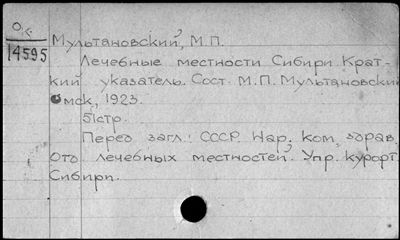 О.с.
14595
Мультановский, М.П.
Лечебные местности Сибири. Крат-
кий указатель. Сост. М.П. Мультановский
Омск, 1923.
51стр.
Перед загл.: СССР. Нар. ком. здрав.
Отд. лечебных местностей. Упр. курорт.
Сибири.